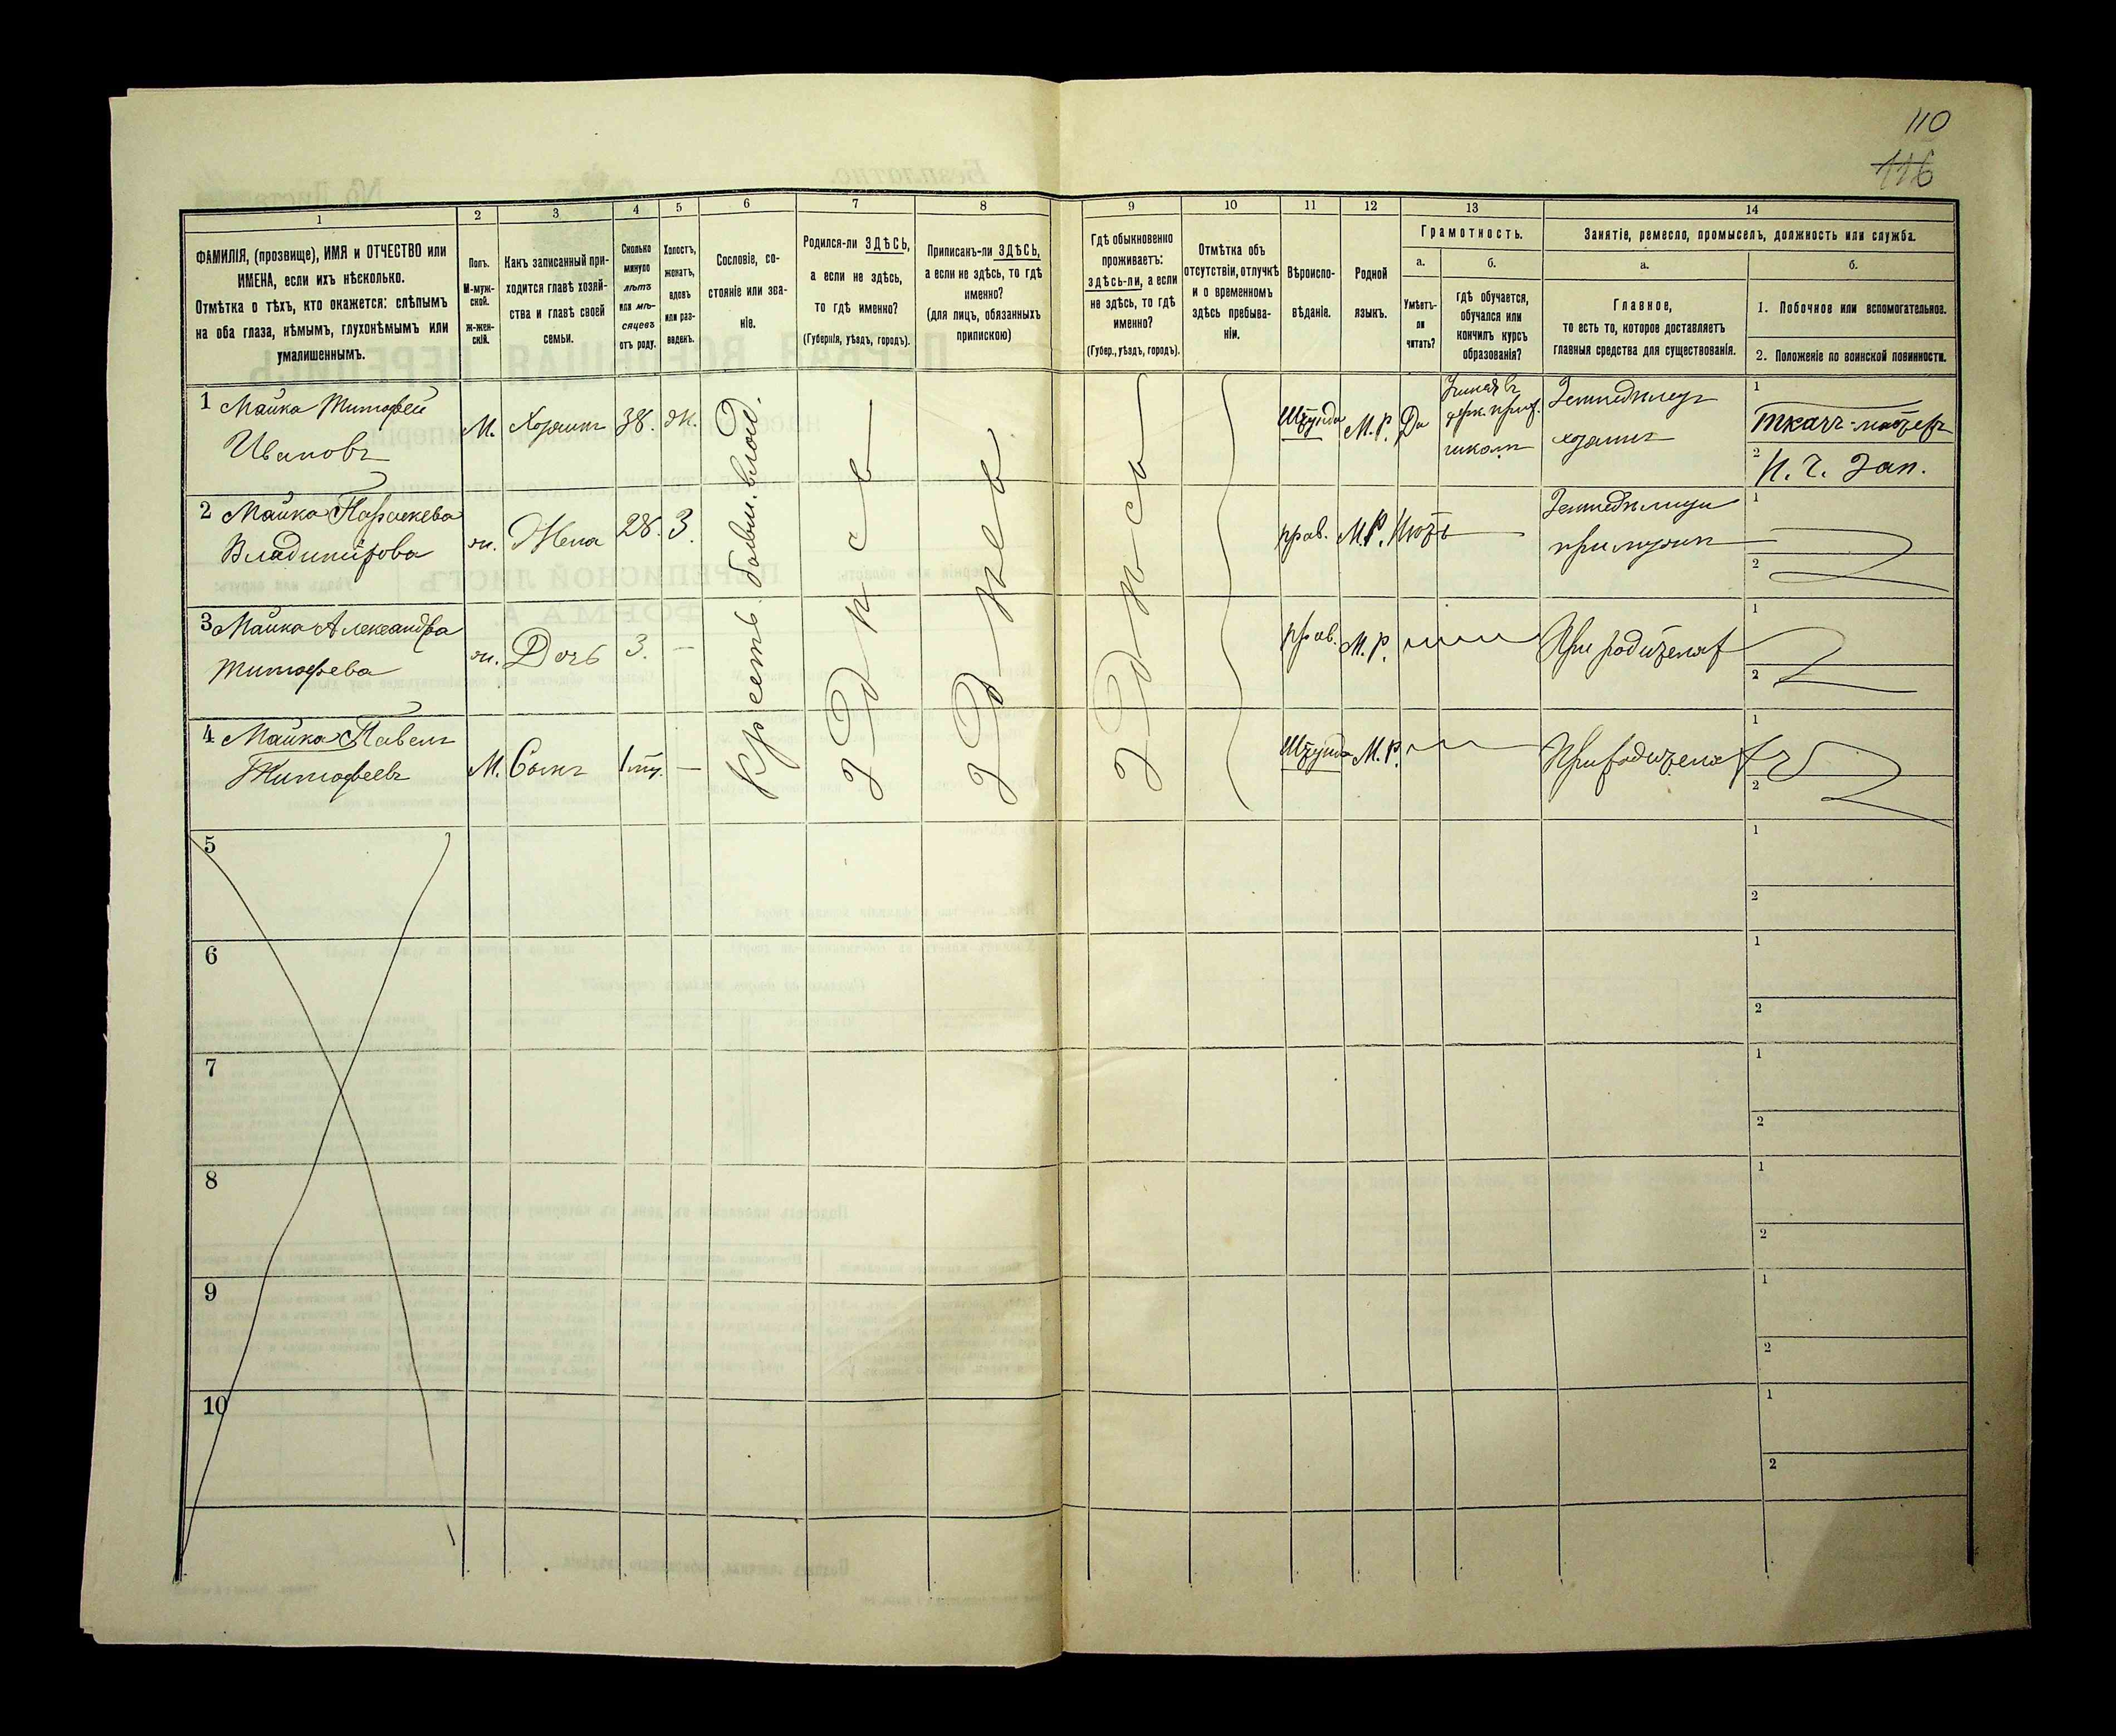 110
116
1
2
3
4
5
6
7
8
9
10
11
12
13
14
ФАМИЛІЯ, (прозвище), ИМЯ и ОТЧЕСТВО или
ИМЕНА, если ихъ нѣсколько.
Отмѣтка о тѣхъ, кто окажется: слѣпымъ
на оба глаза, нѣмымъ, глухонѣмымъ или
умалишеннымъ.
Полъ.
М-муж-
ской.
Ж-жен-
скій.
Какъ записанный при-
ходится главѣ хозяй-
ства и главѣ своей
семьи.
Сколько
минуло
лѣтъ
или мѣ-
сяцевъ
отъ роду.
Холостъ,
женатъ,
вдовъ
или раз-
веденъ.
Сословіе, со-
стояніе или зва-
ніе.
Родился-ли ЗДѢСЬ,
а если не здѣсь,
то гдѣ именно?
(Губернія, уѣздъ, городъ).
Приписанъ-ли ЗДѢСЬ,
а если не здѣсь, то гдѣ
именно?
(для лицъ, обязанныхъ
припискою)
Гдѣ обыкновенно
проживаетъ:
здѣсь-ли, а если
не здѣсь, то гдѣ
именно?
(Губер., уѣздъ, городъ).
Отмѣтка объ
отсутствіи, отлучкѣ
и о временномъ
здѣсь пребыва-
ніи.
Вѣроиспо-
вѣданіе.
Родной
языкъ.
Грамотность.
а.
Умѣетъ-
ли
читать?
б.
гдѣ обучается,
обучался или
кончилъ курсъ
образованія?
Занятіе, ремесло, промыселъ, должность или служба.
а.
Главное,
то есть то, которое доставляетъ
главныя средства для существованія.
б.
1. Побочное или вспомогательное.
2. Положеніе по воинской повинности.
1 Майка Тимофей
Ивановъ
М.
Хозяинъ
38.
Ж.
Крестъ. бывш. влад.
Здѣсь
Здѣсь
Здѣсь
Штунда
М.Р.
Да
школѣ
Земледѣлецъ
хозяинъ
1
Ткачъ-мастеръ
2
И. г. Зап.
2 Майка Параскева
Владимірова
ж.
Жена
28.
З.
прав.
М.Р.
Нѣтъ
Земледѣлица
при мужѣ
1
2
3 Майка Александра
Тимофеева
ж.
Дочь
3.
—
прав.
М.Р.
При родителях
1
2
4 Майка Павелъ
Тимофеевъ
М.
Сынъ
—
Штунда
М.Р.
При родителях
1
2
5
1
2
6
1
2
7
1
2
8
1
2
9
1
2
10
1
2